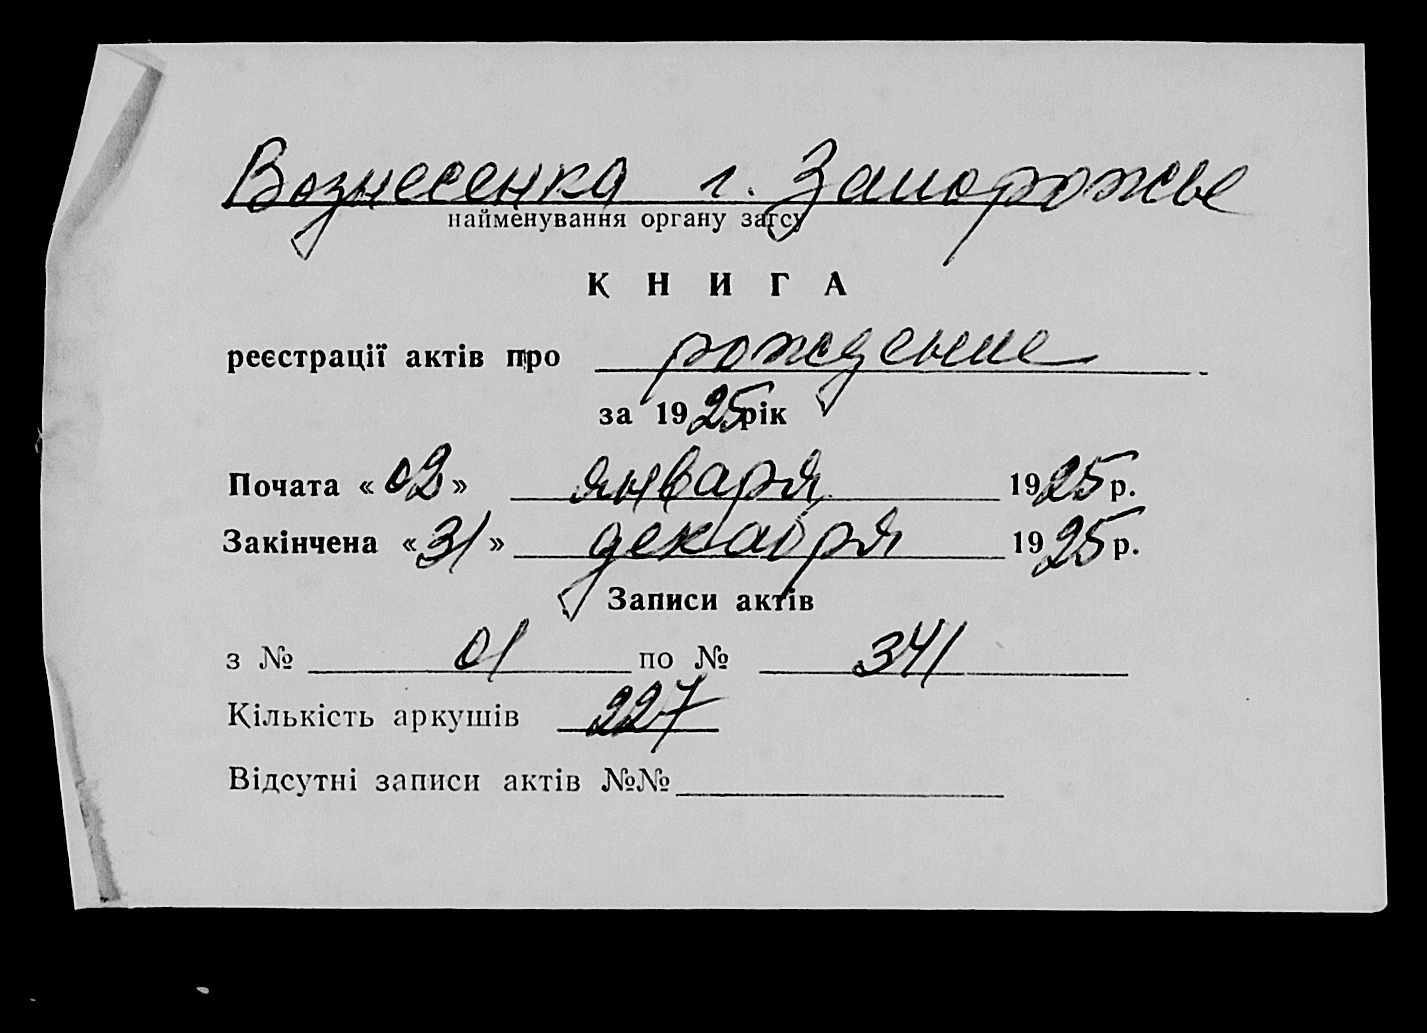 Вознесенка г. Запорожье
найменування органу загсу
КНИГА
реєстрації актів про рождение
за 1925 рік
Почата «02» января 1925 р.
Закінчена «31» декабря 1925 р.
Записи актів
з № 01 по № 341
Кількість аркушів 227
Відсутні записи актів №№